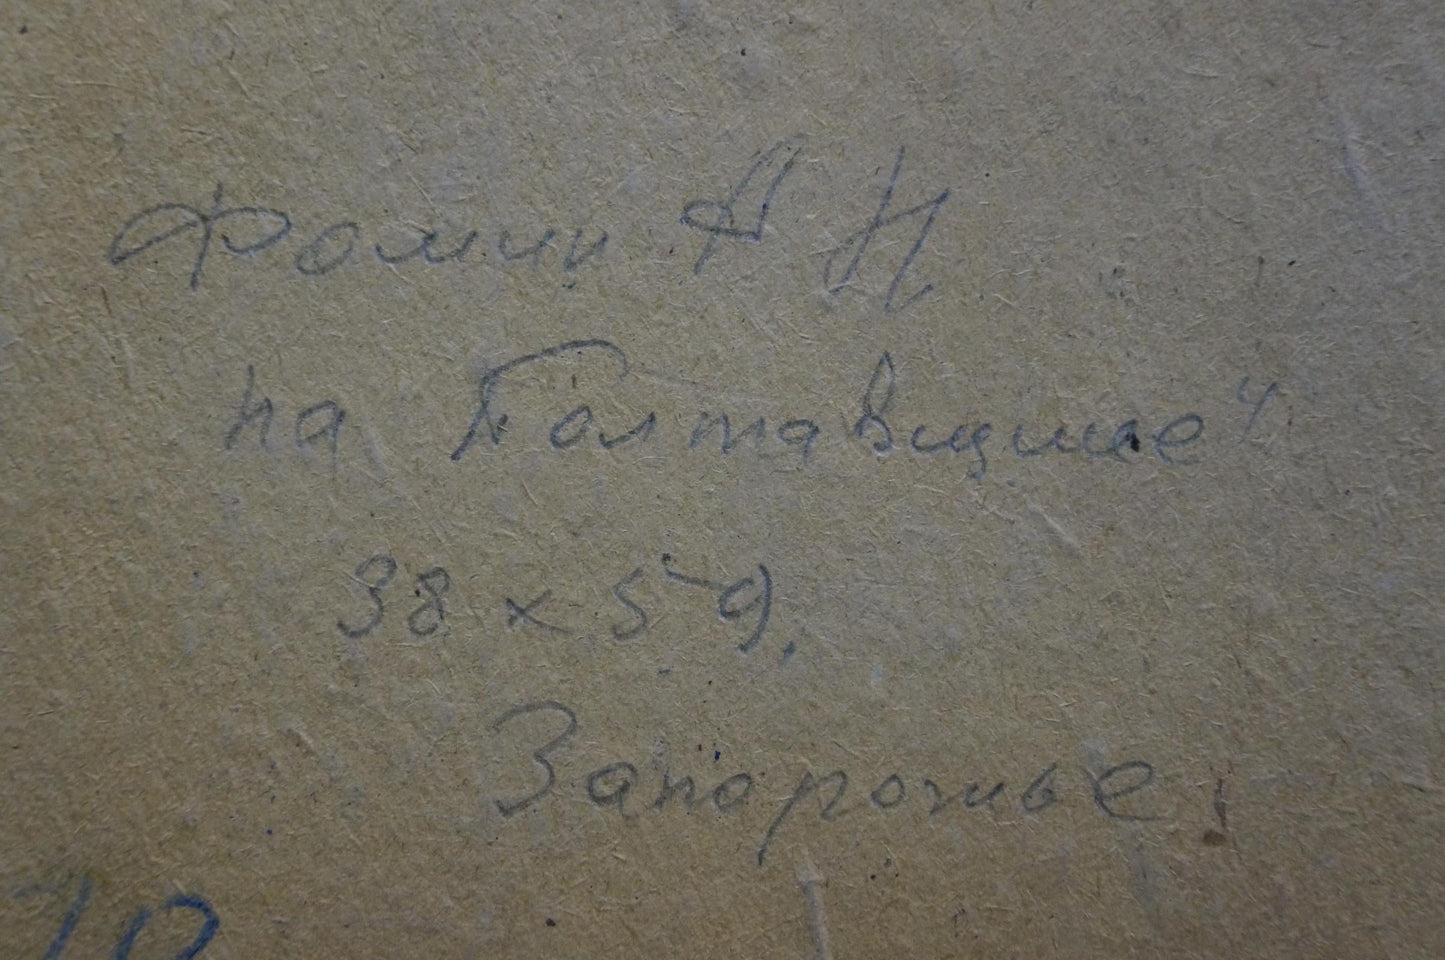 Фомин А Н
на Полтавщине"
38 x 59.
Запорожье.
70